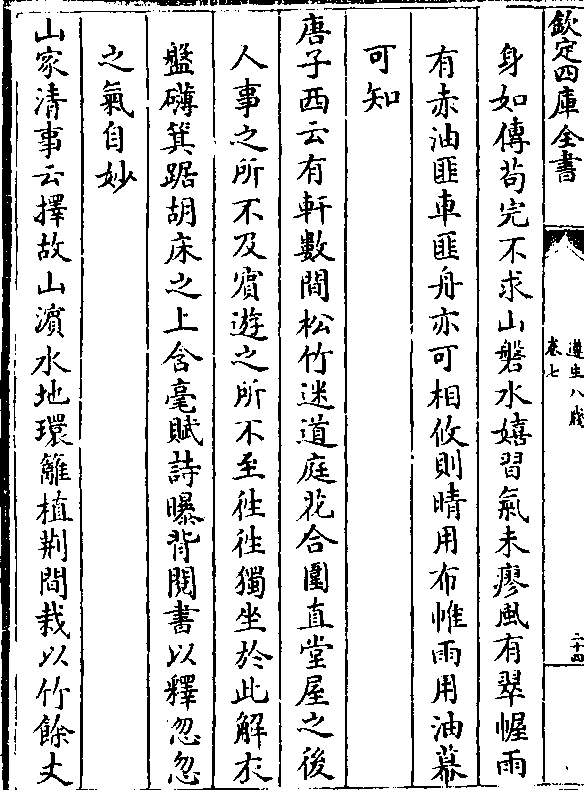 欽定四庫全書
遵生八牋
卷七
二十四
身如傳苟完不求山磐水嬉習氣未廖風有翠幄雨
有赤油匪車匪舟亦可相攸則晴用布帷雨用油幕
可知
唐子西云有軒數間松竹迷道庭花合圍直堂屋之後
人事之所不及賓遊之所不至徃徃獨坐於此解衣
盤礴箕踞胡床之上含毫賦詩曝背閱書以釋忽忽
之氣自妙
山家清事云擇故山濵水地環籬植荆間栽以竹餘丈